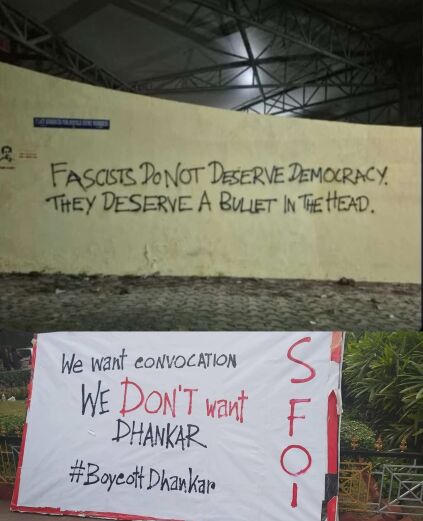 FASCISTS DO NOT DESERVE DEMOCRACY.
THEY DESERVE A BULLET IN THE HEAD.
We want CONVOCATION
WE DON'T want
DHANKAR
#Boycott Dhankar
SFOI